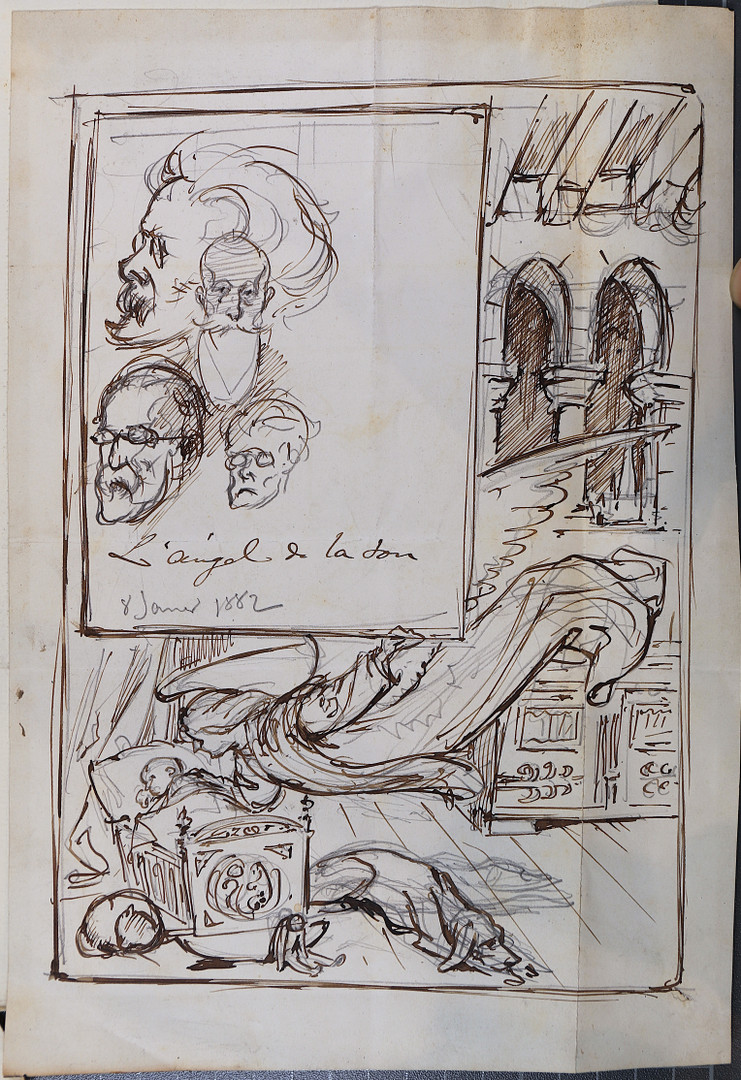 L'àngel de la son
8 Janer 1882